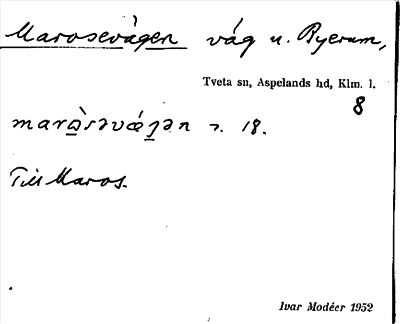 Marosevägen väg u. Byerum,
Tveta sn, Aspelands hd, Klm. l.
8
18.
Till Maros.
Ivar Modéer 1952